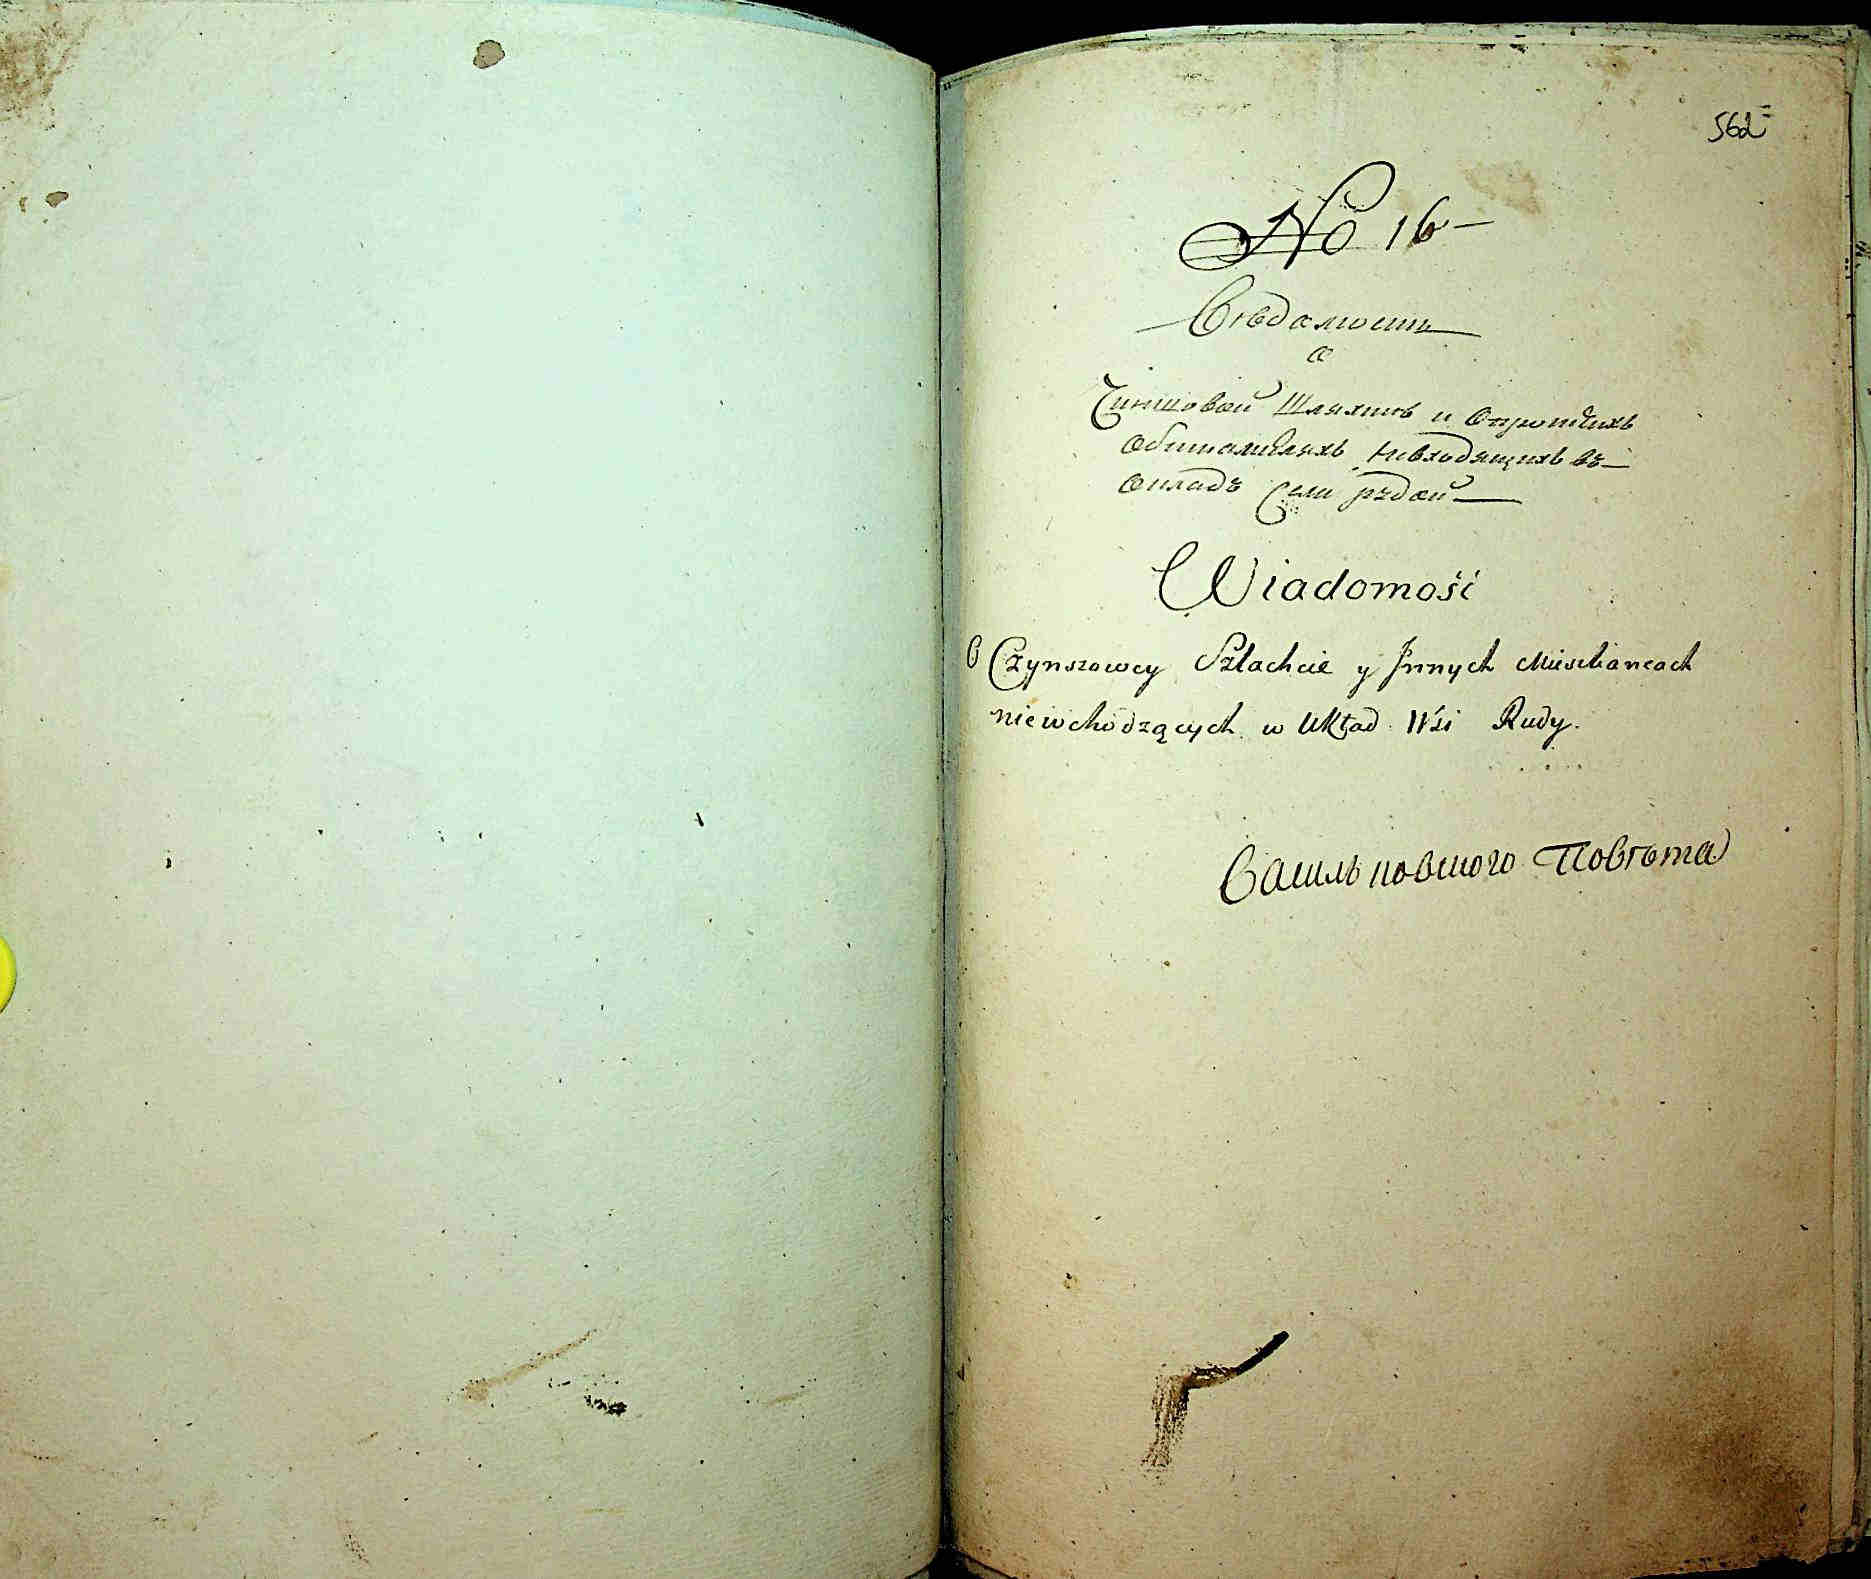 562
No 16
Вѣдомость
о
Чиншовой Шляхтѣ и опротчихъ
обитателяхъ невходящихъ въ
окладъ Села рудой
Wiadomość
O Czynszowey Szlachcie y Innych Mieszkancach
niewchodzących w Układ Wsi Rudy.
Василь повѣта